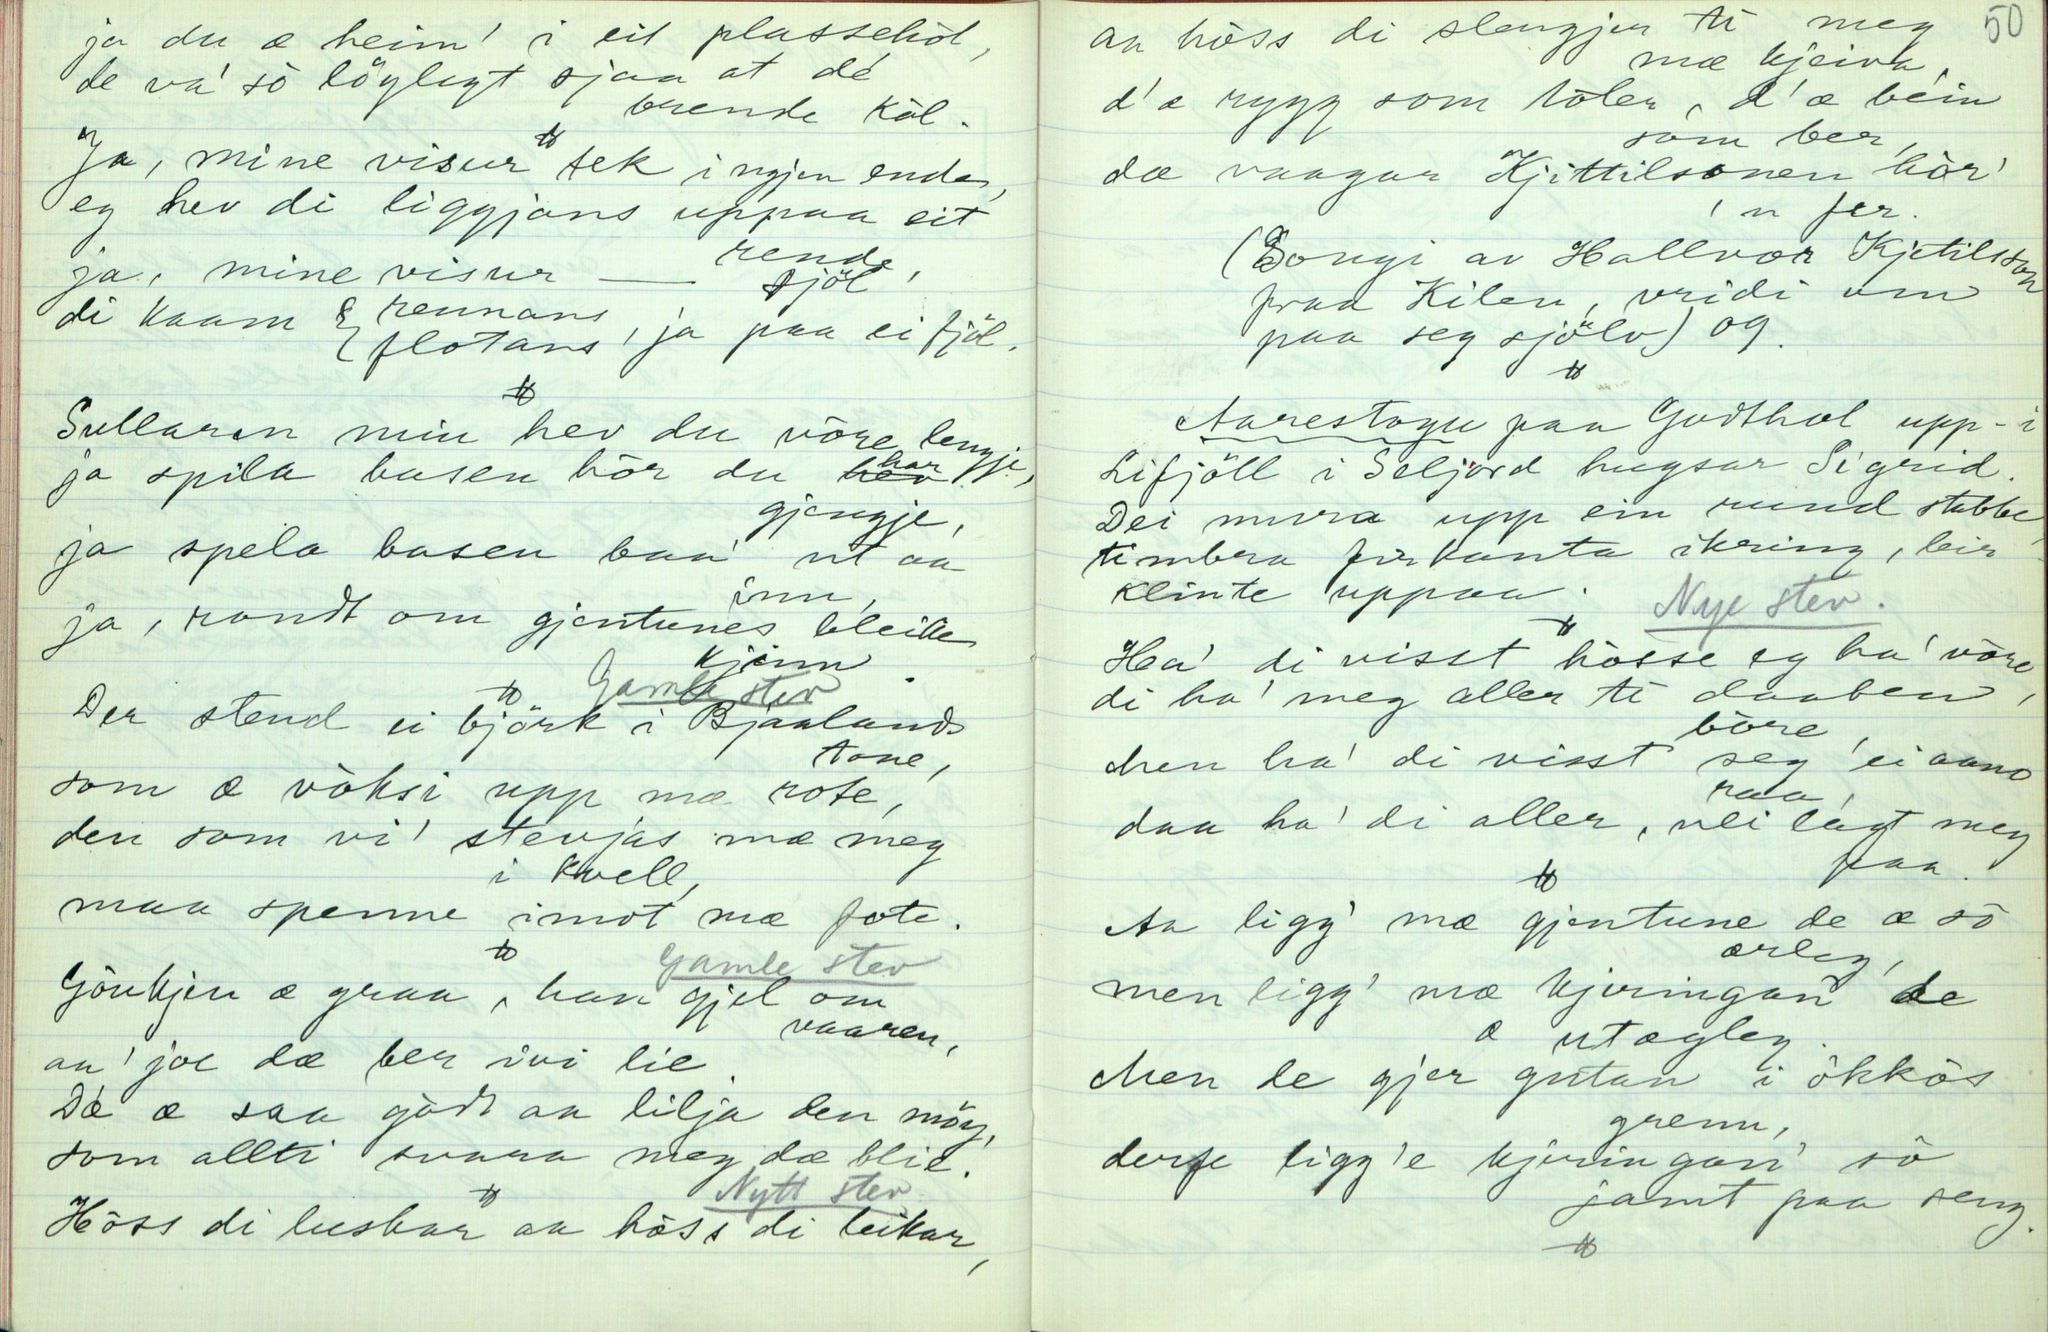 ja du æ heim' i eit plassehòl,
de va' sò löglegt sjaa at dé
brende kòl.
Ja, mine visur tek ingjen enda,
eg hev di liggjans uppaa eit
rende,
ja, mine visur — sjöl,
di kaam { rennans
{ flotans, ja paa ei fjöl.
Sullaren min hev du vöre lengje,
ja spila basen hòr du har
gjengje,
ja spela basen baa' ut aa
inn,
ja, rondt om gjentunes bleike
kjinn.
Gamle stev
Der stend ei björk i Bjaalands
tone,
som æ vòksi upp mæ rote,
den som vi' stevjas mæ meg
i kvell,
maa spenne imot mæ fote.
Gamle stev
Gòukjen æ graa, han gjel om
vaaren,
aa' joe dæ ber ivi lie.
Dé æ saa gòdt aa lilja den möy,
som allti svara meg dæ blie.
Nytt stev
Hòss di luskar aa hòss di leikar,
50
aa hòss di slengjer ti meg
mæ kjeiva,
d'æ rygg som tòler, d'æ bein
som ber,
dæ vaagar Kjittilsonen hòr'
'n fer.
(Songi av Hallvor Kjetilsson
fraa Kilen, vridi um
paa seg sjölv) og.
Aarestogu paa Godthol upp-i
Lifjöll i Seljord hugsar Sigrid.
Dei mura upp ein rund stabbe,
timbra firkanta ikring, leir-
klinte uppaa.
Nye stev.
Ha' di visst hòsse eg ha' vöre,
di ha' meg aller ti daaben
bòre,
men ha' di visst seg' ei aano
raa,
daa ha' di aller, vèi lagt meg
paa.
Aa ligg' mæ gjentune de æ sò
ærleg,
men ligg' mæ kjeringan de
æ utægleg.
Men de gjer gutan i òkkòs
grenn,
derfe ligg'e kjeringan' sò
jamt paa seng.